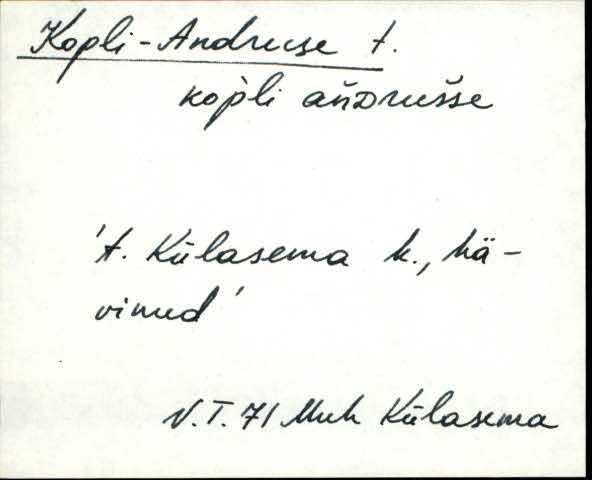 Kopli-Andruse t.
kop̀li añᴅrušse
't. Külasema k., hä-
vinud'
V.T. 71 Muh Külasema